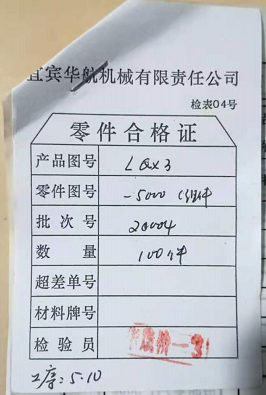 宜宾华航机械有限责任公司
检表04号
零件合格证
产品图号 LQX3
零件图号 -5000
批次号 20004
数量 100件
超差单号
材料牌号
检验员
工序:5.10